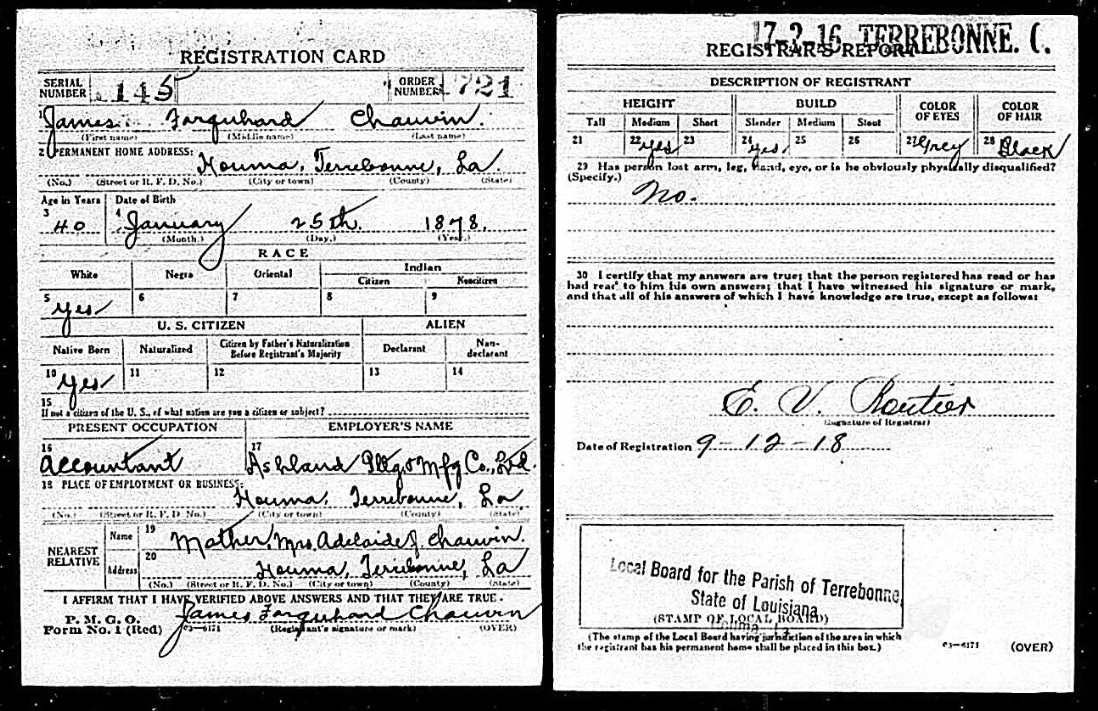 REGISTRATION CARD
SERIAL NUMBER 145 ORDER NUMBER 721
1 James Farquhard Chauvin.
(First name) (Middle name) (Last name)
2 PERMANENT HOME ADDRESS:
Houma, Terrebonne, La
(No.) (Street or R. F. D. No.) (City or town) (County) (State)
Age in Years Date of Birth
3 40 4 January 25th. 1878.
(Month.) (Day.) (Year.)
RACE
White Negro Oriental Indian
Citizen Noncitizen
5 Yes 6 7 8 9
U. S. CITIZEN ALIEN
Native Born Naturalized Citizen by Father's Naturalization Before Registrant's Majority Declarant Non-declarant
10 Yes 11 12 13 14
15
If not a citizen of the U. S., of what nation are you a citizen or subject?
PRESENT OCCUPATION EMPLOYER'S NAME
16 Accountant 17 Ashland Pltg & Mfg Co., Ltd.
18 PLACE OF EMPLOYMENT OR BUSINESS:
Houma, Terrebonne, La
(No.) (Street or R. F. D. No.) (City or town) (County) (State)
NEAREST RELATIVE Name 19 Mother, Mrs. Adelaide J. Chauvin.
Address 20 Houma, Terrebonne, La
(No.) (Street or R. F. D. No.) (City or town) (County) (State)
I AFFIRM THAT I HAVE VERIFIED ABOVE ANSWERS AND THAT THEY ARE TRUE.
P. M. G. O.
Form No. 1 (Red) 03—6171 James Farquhard Chauvin
(Registrant's signature or mark) (OVER)
17-2-16 TERREBONNE. C.
REGISTRAR'S REPORT
DESCRIPTION OF REGISTRANT
HEIGHT BUILD COLOR OF EYES COLOR OF HAIR
Tall Medium Short Slender Medium Stout
21 22 yes 23 24 yes. 25 26 27 Grey 28 Black
29 Has person lost arm, leg, hand, eye, or is he obviously physically disqualified?
(Specify.)
no.
30 I certify that my answers are true; that the person registered has read or has
had read to him his own answers; that I have witnessed his signature or mark,
and that all of his answers of which I have knowledge are true, except as follows:
E. V. Routier
(Signature of Registrar)
Date of Registration 9-12-18
Local Board for the Parish of Terrebonne,
State of Louisiana,
(STAMP OF LOCAL BOARD)
(The stamp of the Local Board having jurisdiction of the area in which
the registrant has his permanent home shall be placed in this box.)
03—6171 (OVER)